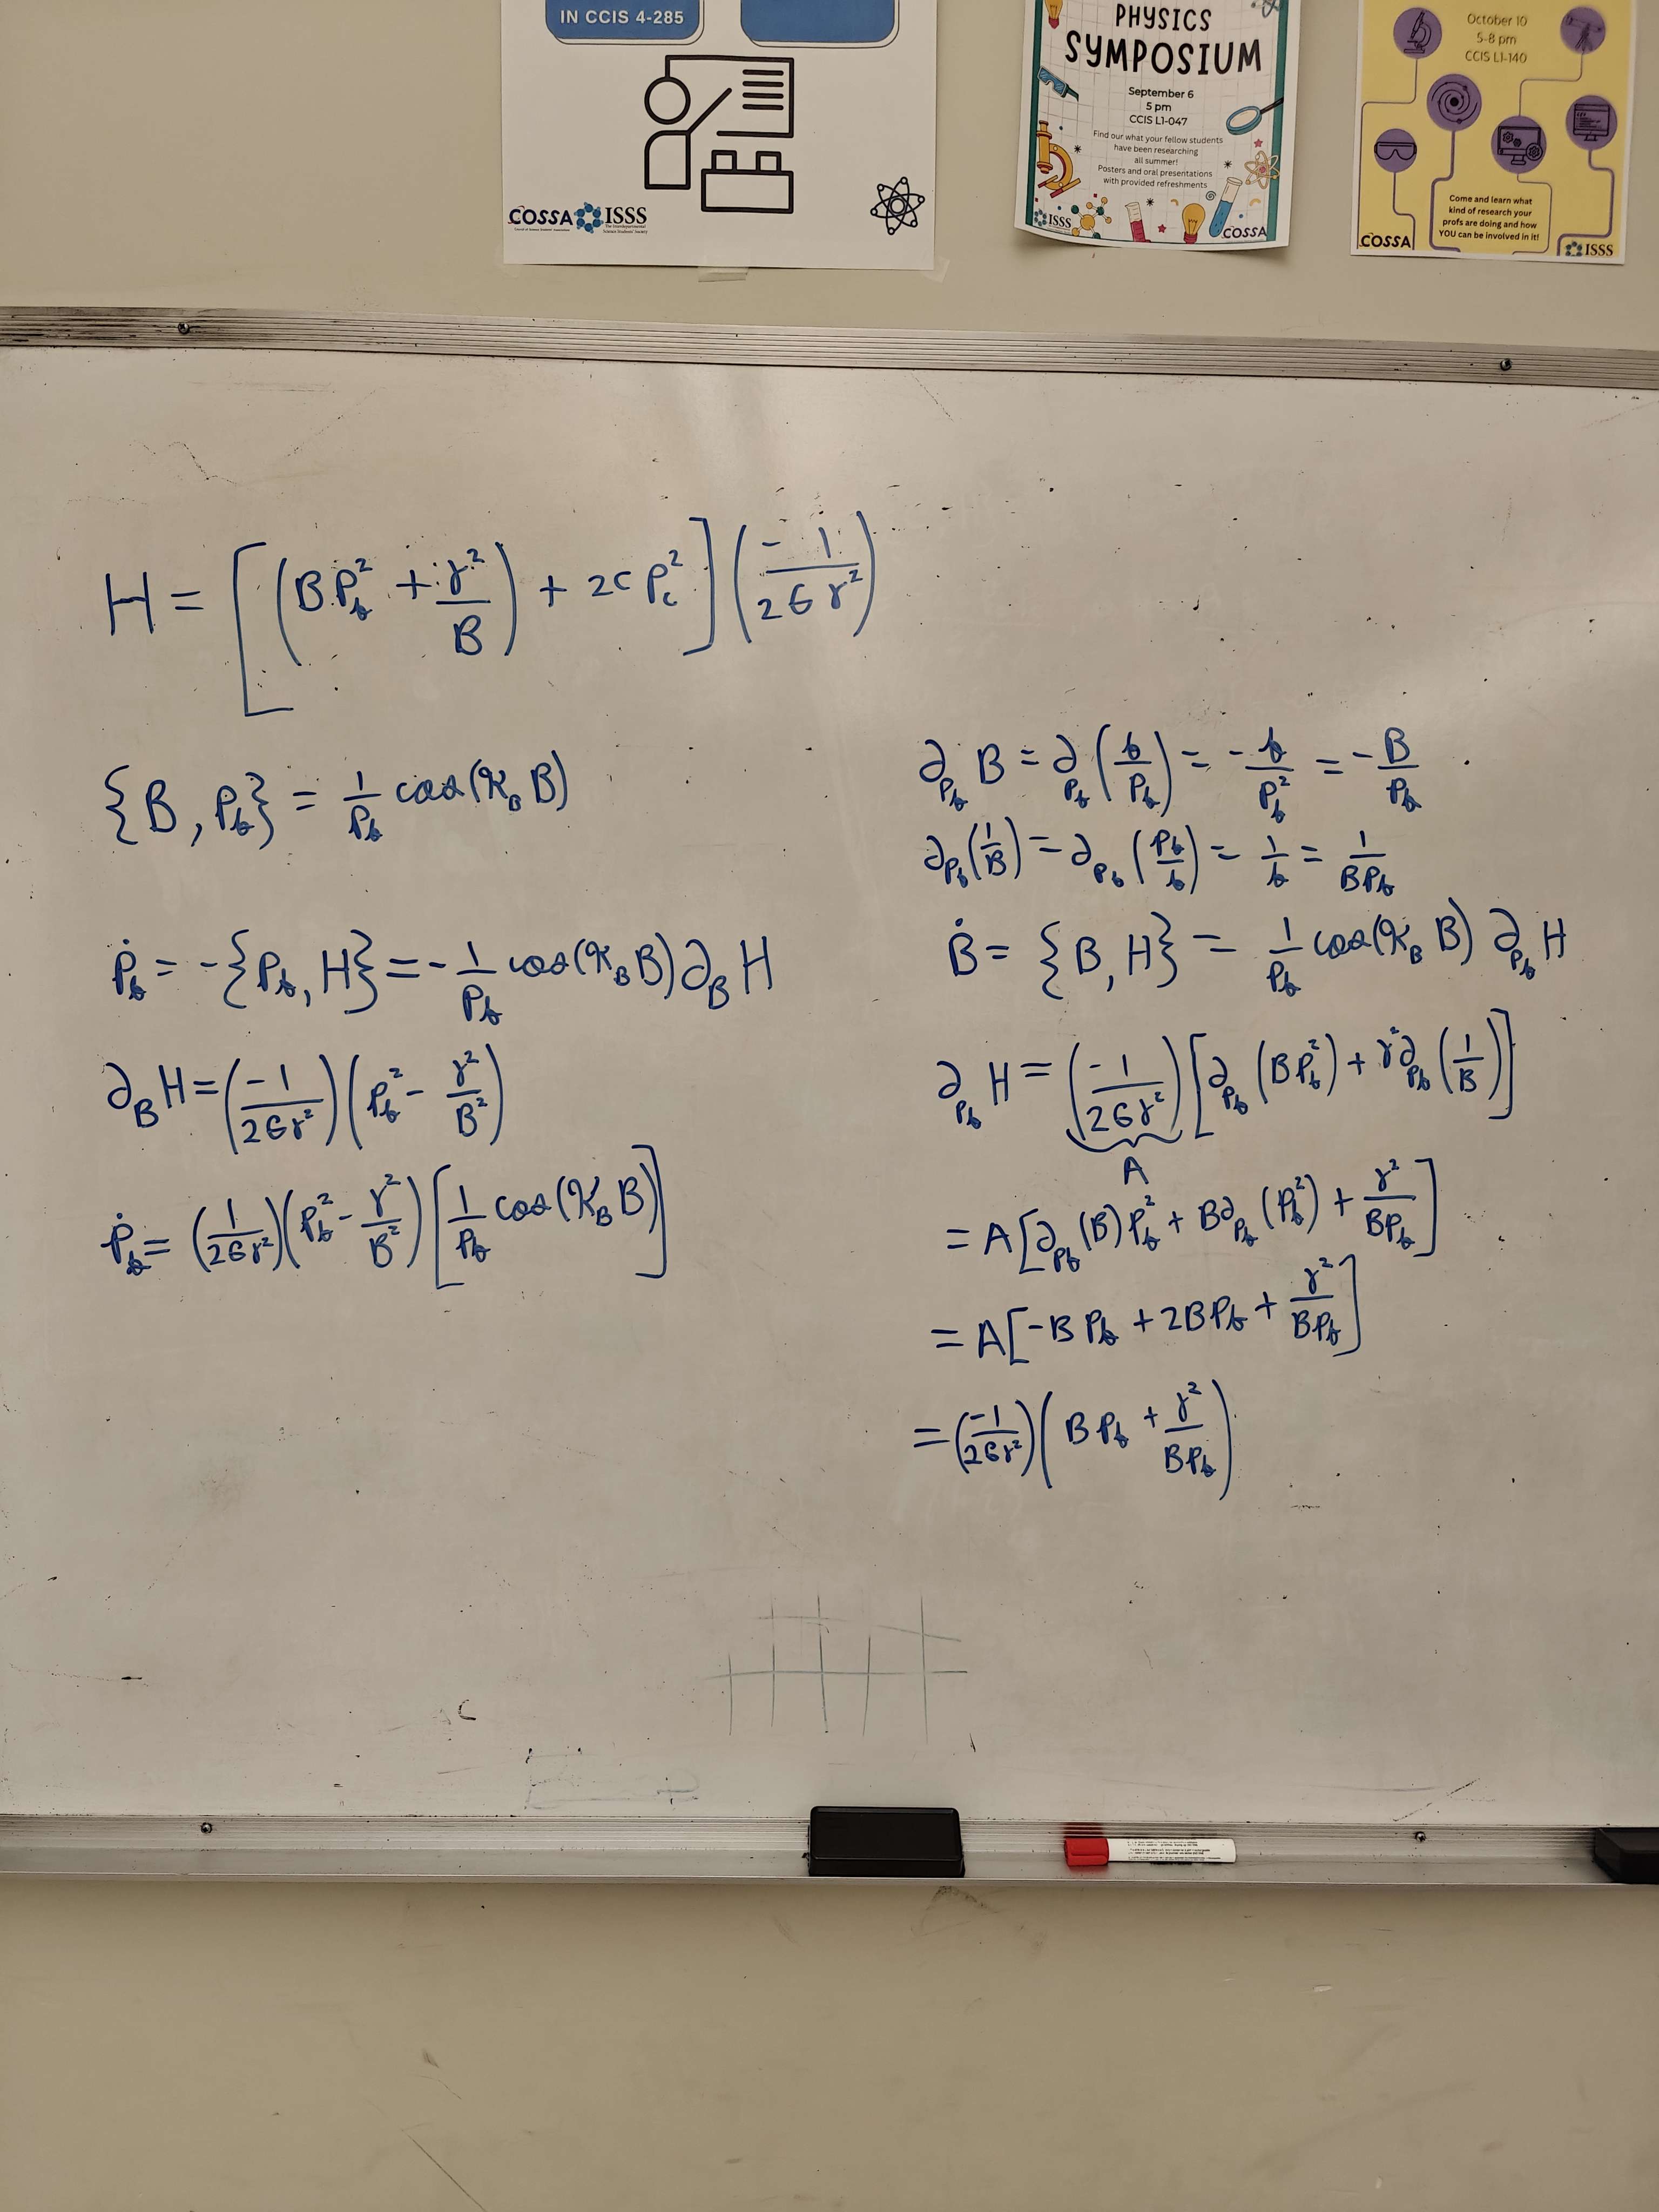 IN CCIS 4-285
COSSA ISSS
PHYSICS
SYMPOSIUM
September 6
5 pm
CCIS L1-047
Find our what your fellow students
have been researching
all summer!
Posters and oral presentations
with provided refreshments
ISSS
COSSA
October 10
5-8 pm
CCIS L1-140
Come and learn what
kind of research your
profs are doing and how
YOU can be involved in it!
COSSA
ISSS
H = [(B P_b² + γ²/B) + 2c P_c²] (-1/2Gγ²)
{B, P_b} = 1/P_b cos(K_B B)
Ṗ_b = -{P_b, H} = -1/P_b cos(K_B B) ∂_B H
∂_B H = (-1/2Gγ²) (P_b² - γ²/B²)
Ṗ_b = (1/2Gγ²) (P_b² - γ²/B²) [1/P_b cos(K_B B)]
∂_{P_b} B = ∂_{P_b} (b/P_b) = -b/P_b² = -B/P_b
∂_{P_b} (1/B) = ∂_{P_b} (P_b/b) = 1/b = 1/BP_b
Ḃ = {B, H} = 1/P_b cos(K_B B) ∂_{P_b} H
∂_{P_b} H = (-1/2Gγ²) [∂_{P_b} (B P_b²) + γ² ∂_{P_b} (1/B)]
A
= A [∂_{P_b} (B) P_b² + B ∂_{P_b} (P_b²) + γ²/BP_b]
= A [-B P_b + 2B P_b + γ²/BP_b]
= (-1/2Gγ²) (B P_b + γ²/BP_b)